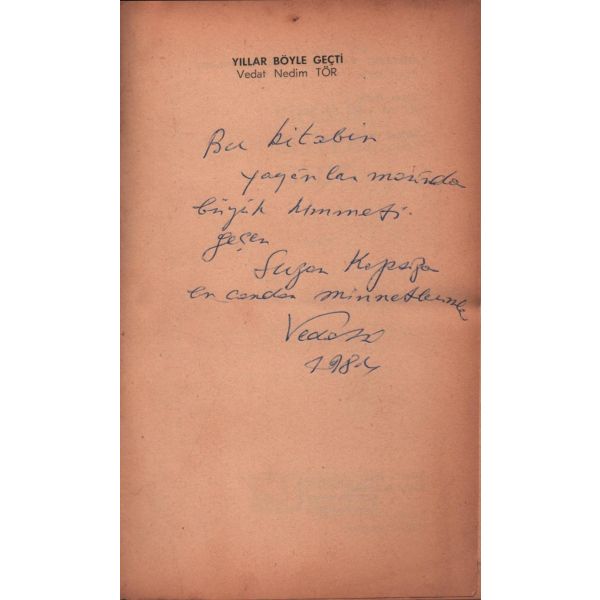 YILLAR BÖYLE GEÇTİ
Vedat Nedim TÖR
Bu kitabın
yayınlanmasında
büyük himmeti
geçen
Suzan
en candan minnetlerimle
Vedat
1984